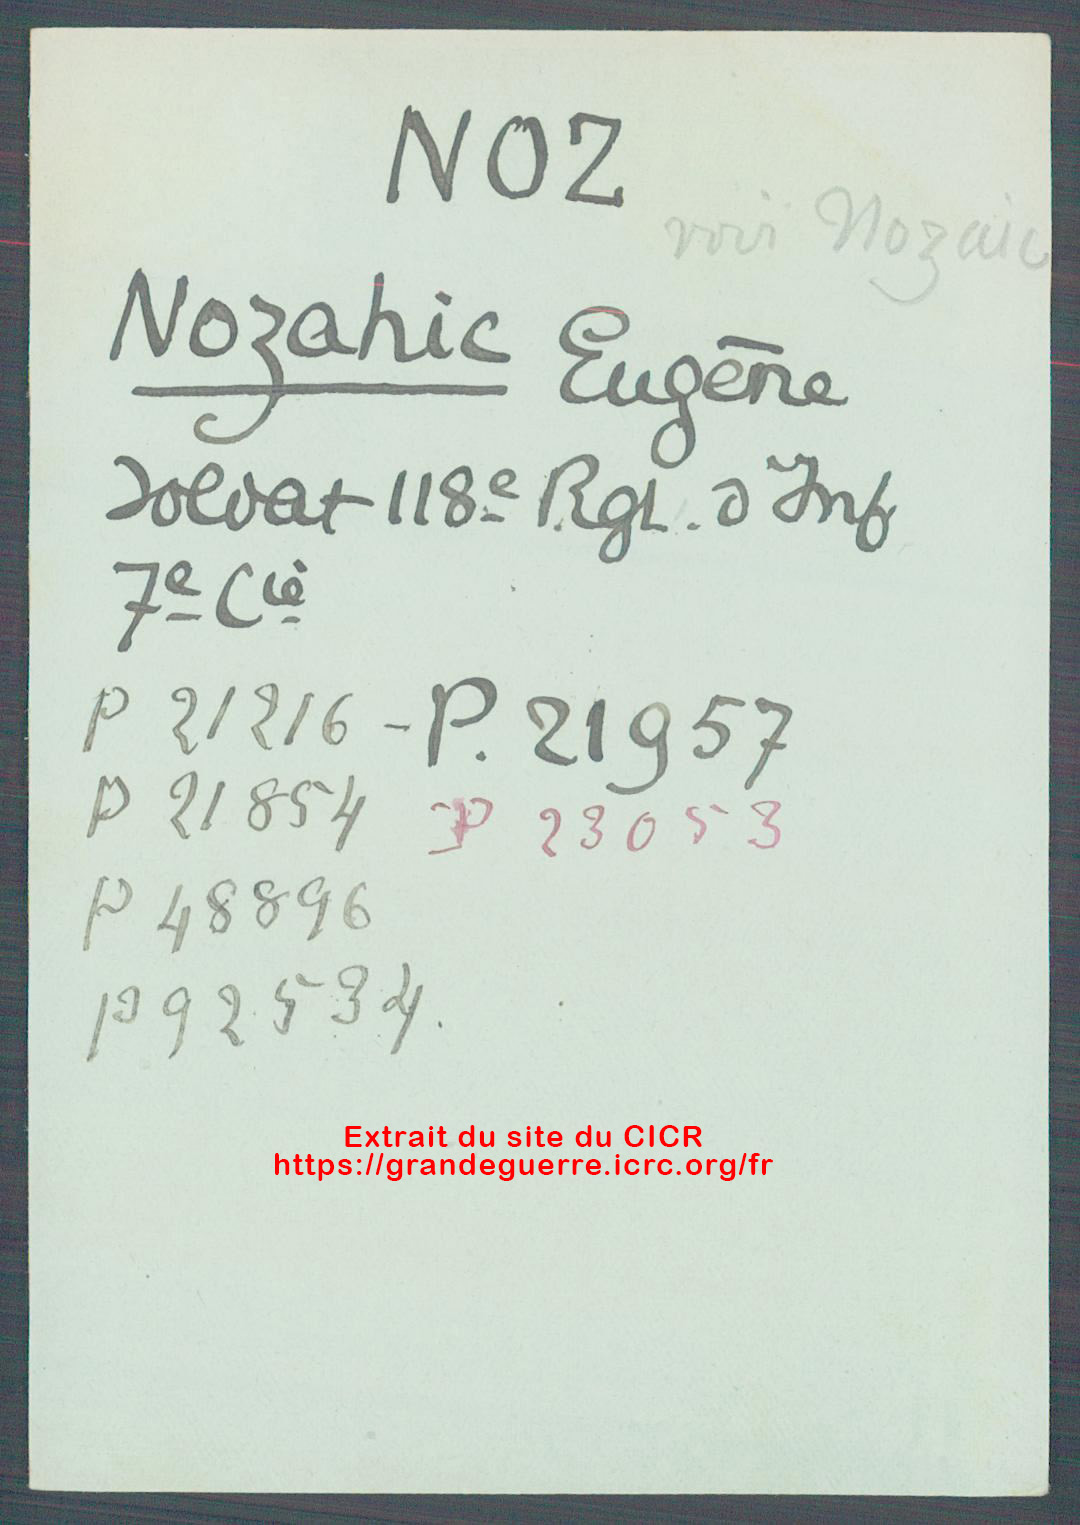 NOZ
voir Nozaic
Nozahic Eugène
Soldat 118e Rgt. d'Inf
7e Cie
P 21216 - P. 21957
P 21854 P 23053
P 48896
P 92534.
Extrait du site du CICR
https://grandeguerre.icrc.org/fr